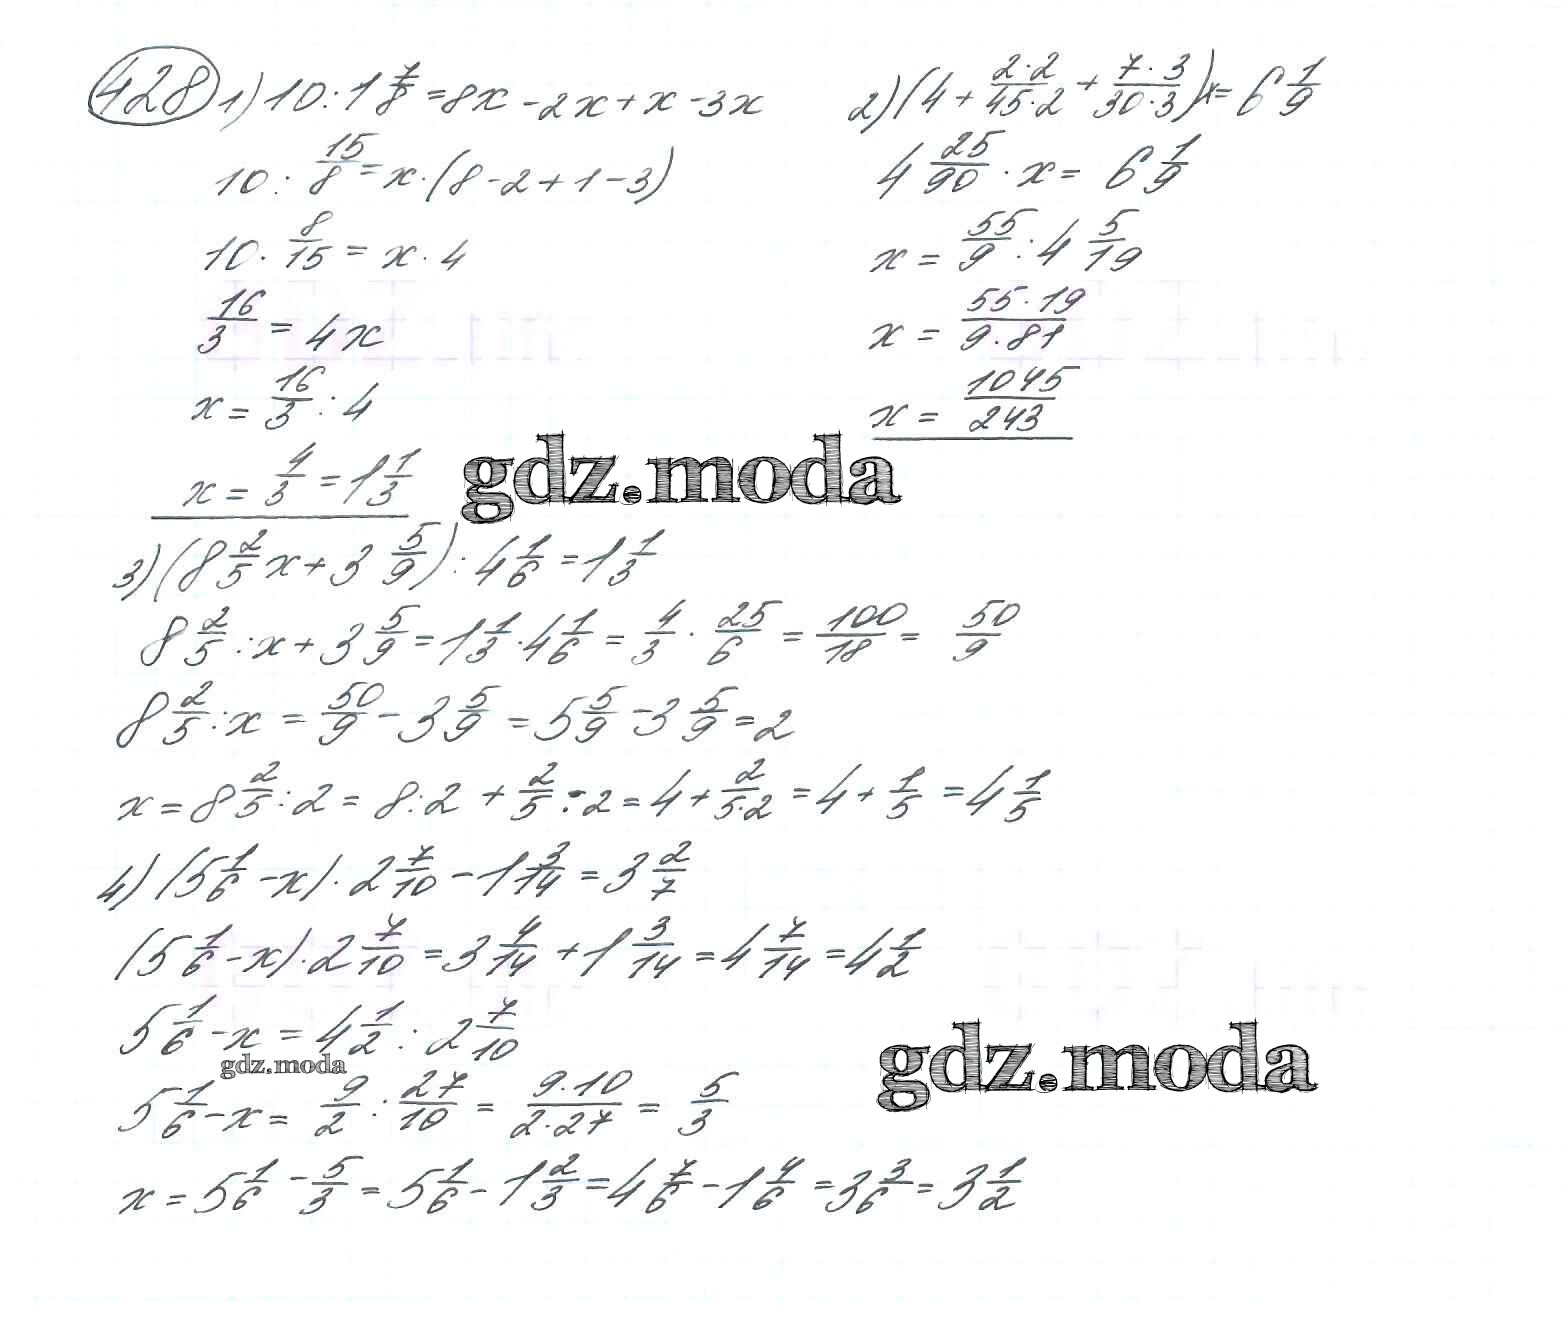 428 1) 10 : 1 7/8 = 8x - 2x + x - 3x
10 : 15/8 = x · (8 - 2 + 1 - 3)
10 · 8/15 = x · 4
16/3 = 4x
x = 16/3 : 4
x = 4/3 = 1 1/3
2) (4 + 2·2/45·2 + 7·3/30·3) x = 6 1/9
4 25/90 · x = 6 1/9
x = 55/9 : 4 5/19
x = 55·19/9·81
x = 1045/243
gdz.moda
3) (8 2/5 x + 3 5/9) : 4 1/6 = 1 1/3
8 2/5 : x + 3 5/9 = 1 1/3 · 4 1/6 = 4/3 · 25/6 = 100/18 = 50/9
8 2/5 : x = 50/9 - 3 5/9 = 5 5/9 - 3 5/9 = 2
x = 8 2/5 : 2 = 8 : 2 + 2/5 : 2 = 4 + 2/5·2 = 4 + 1/5 = 4 1/5
4) (5 1/6 - x) · 2 7/10 - 1 3/14 = 3 2/7
(5 1/6 - x) · 2 7/10 = 3 4/14 + 1 3/14 = 4 7/14 = 4 1/2
5 1/6 - x = 4 1/2 : 2 7/10
gdz.moda
gdz.moda
5 1/6 - x = 9/2 : 27/10 = 9·10/2·27 = 5/3
x = 5 1/6 - 5/3 = 5 1/6 - 1 2/3 = 4 7/6 - 1 4/6 = 3 3/6 = 3 1/2